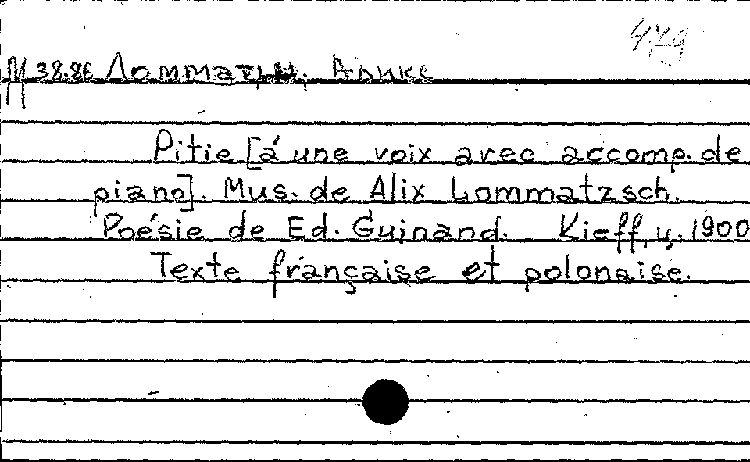 М 38.86 Ломматцш, Аликс
Pitie [á une voix avec accomp. de
piano]. Mus. de Alix Lommatzsch.
Poésie de Ed. Guinand. Kieff, 1900
Texte française et polonaise.